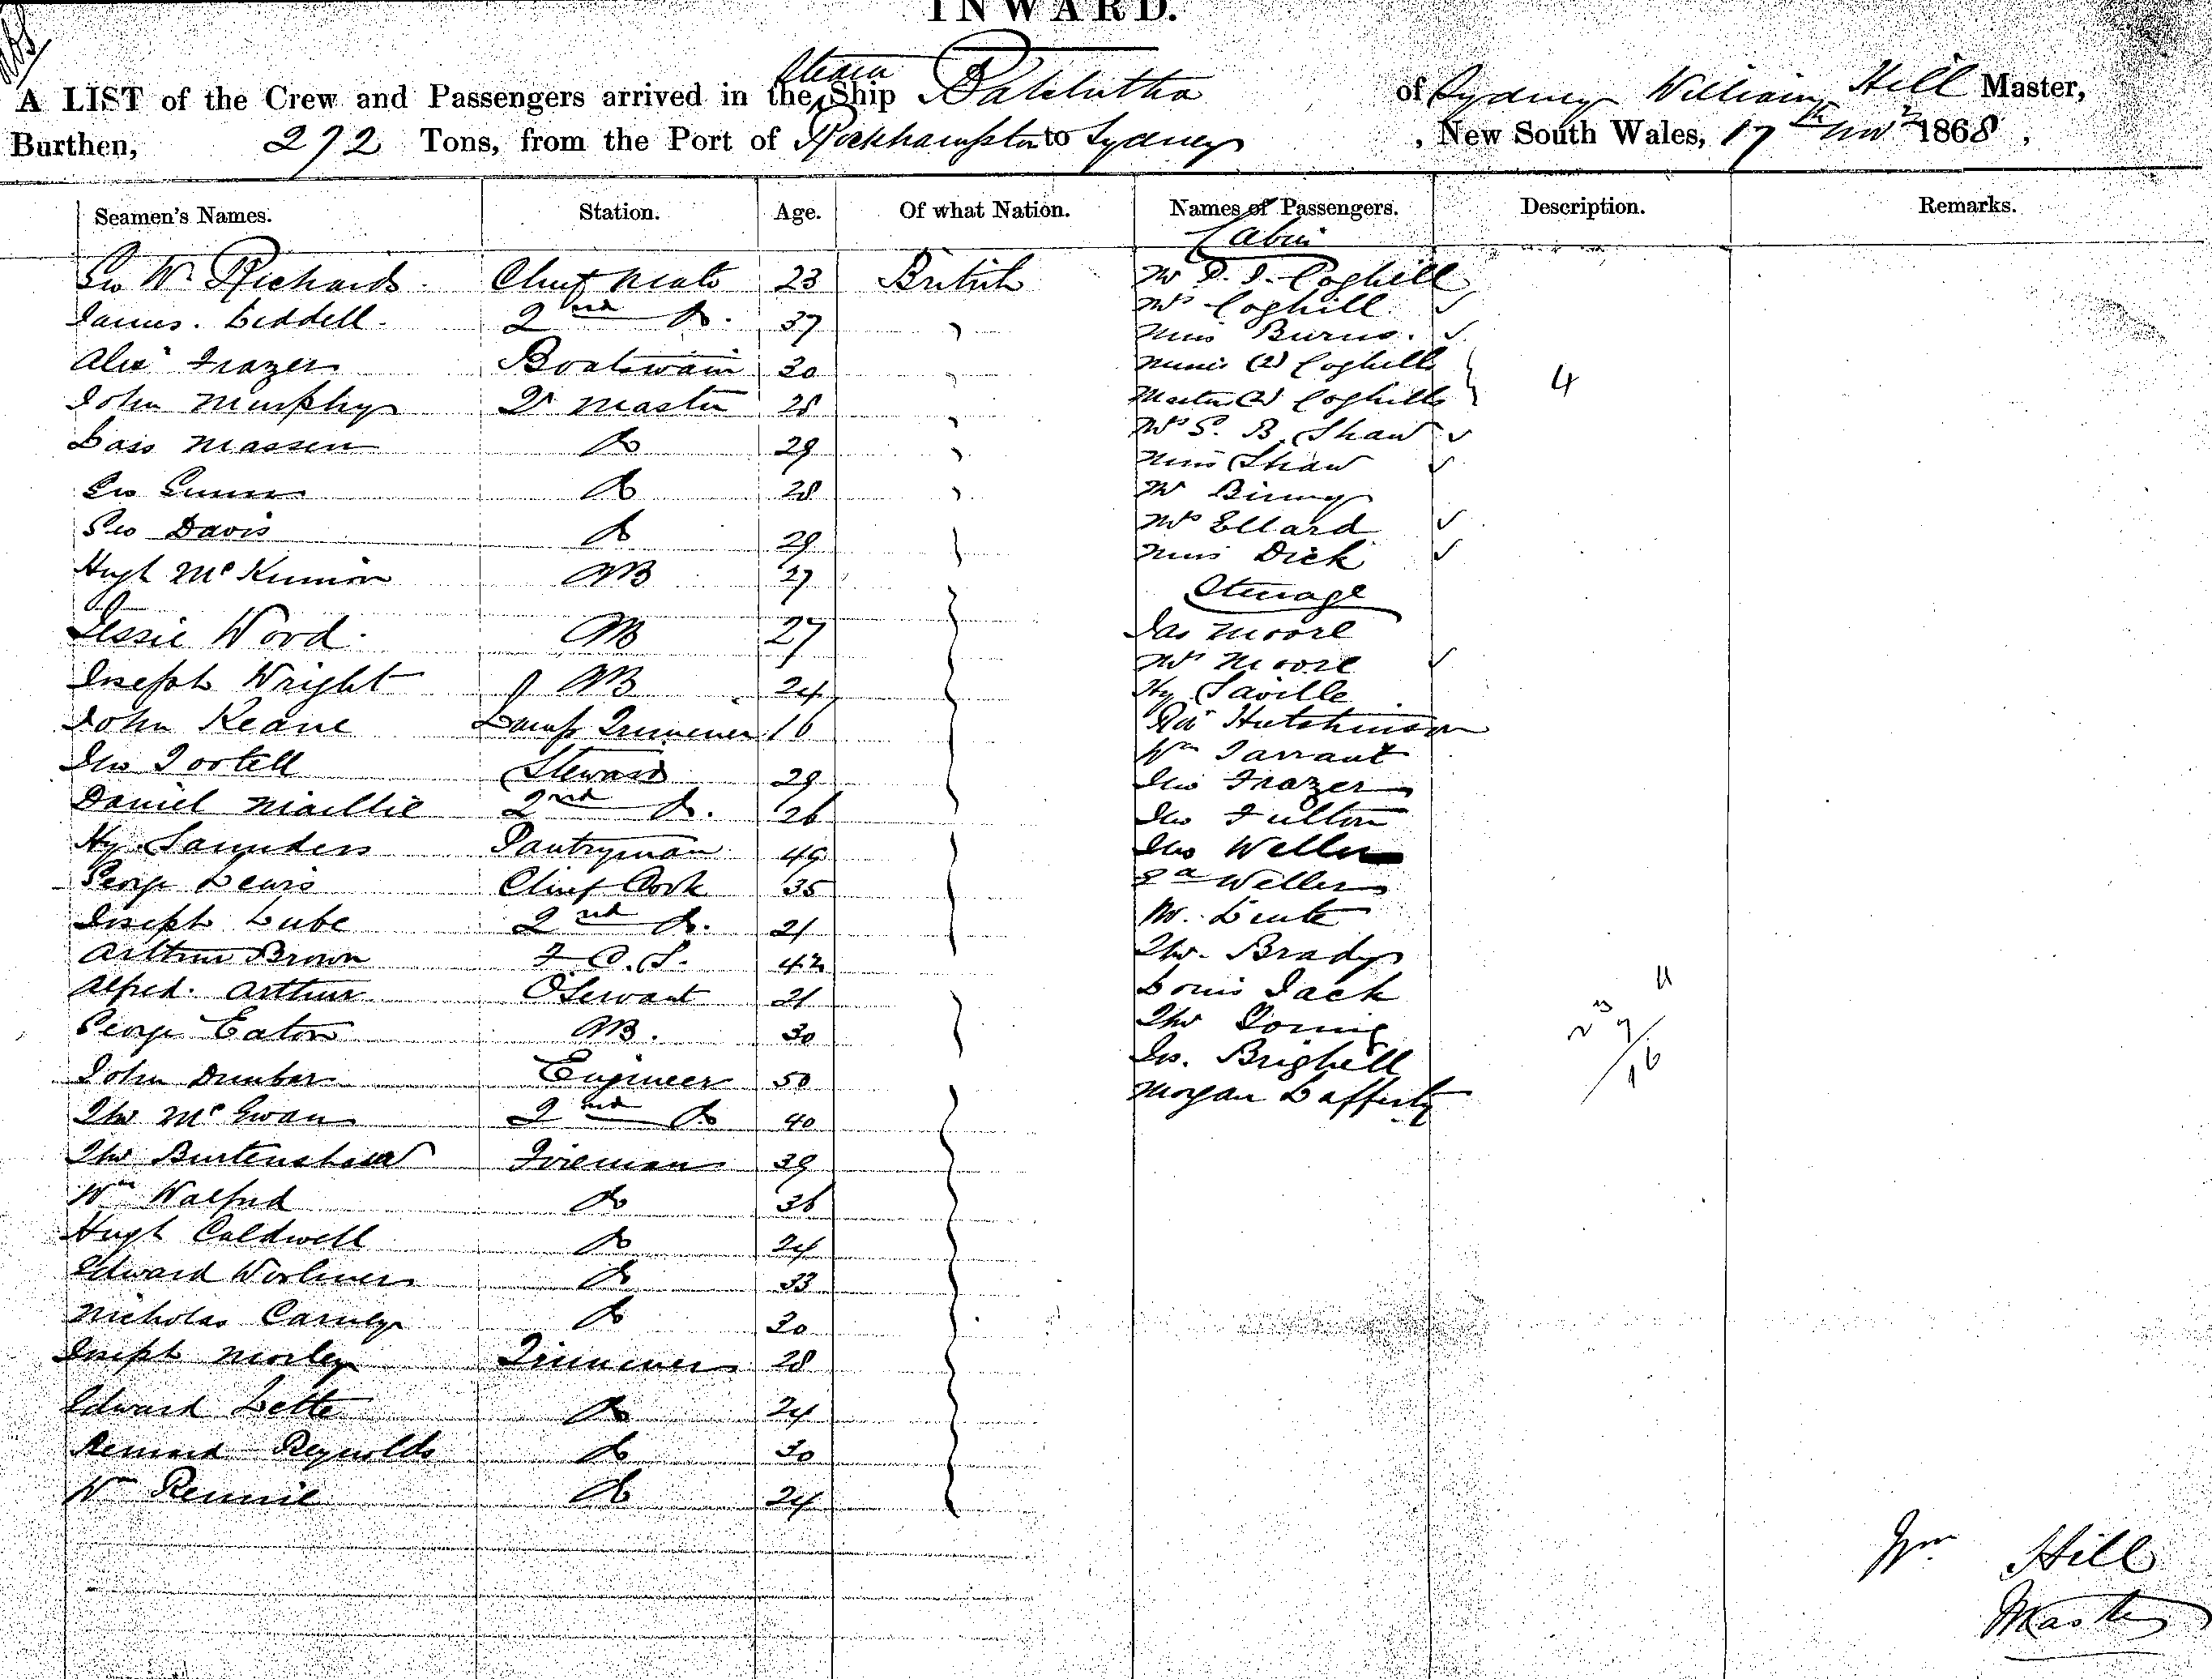 INWARD.
A LIST of the Crew and Passengers arrived in the Steam Ship Balclutha of Sydney William Hill Master,
Burthen, 272 Tons, from the Port of Rockhampton to Sydney, New South Wales, 17th Nov 1868,
Seamen's Names. Station. Age. Of what Nation. Names of Passengers. Description. Remarks.
Cabin
Geo Wm Richards Chief Mate 23 British Mr P. I. Coghill
James Liddell 2nd Do. 37 Mrs Coghill
Miss Burns
Alex Frazer Boatswain 30 Misses (2) Coghill
4
John Murphy Qr Master 28 Masters (2) Coghill
Mrs S. B. Shaw
Lass Massen Do 29 Miss Shaw
Geo Gunn Do 28 Mr Binny
Geo Davis Do 29 Mrs Ellard
Miss Dick
Hugh McKinnon AB 27 Steerage
Jessie Wood AB 27 Jas Moore
Mrs Moore
Joseph Wright AB 24 Hy Saville
John Keane Lamp Trimmer 16 Rd Hutchinson
Wm Tarrant
Jno Tortell Steward 29 Jno Frazer
Daniel Maillie 2nd Do. 26 Jno Fulton
Hy Saunders Pantryman 49 Jno Weller
George Lewis Chief Cook 35 Weller
Joseph Lube 2nd Do. 21 M.
Arthur Brown F.C.S. 42 Tho. Brady
Alfred Arthur O Servant 21 Louis Jack
George Eaton AB. 30 Tho
Jno. Brighell
John Dunbar Engineer 50 Morgan Lafferty
Tho McEwan 2nd Do 40
Tho Burtenshaw Fireman 39
Wm Walford Do 36
Hugh Caldwell Do 24
Edward Woolmer Do 33
Nicholas Carney Do 30
Joseph Morley Trimmer 28
Edward Lette Do 24
Reynolds Do 30
Wm Rennie Do 24
Wm Hill
Master